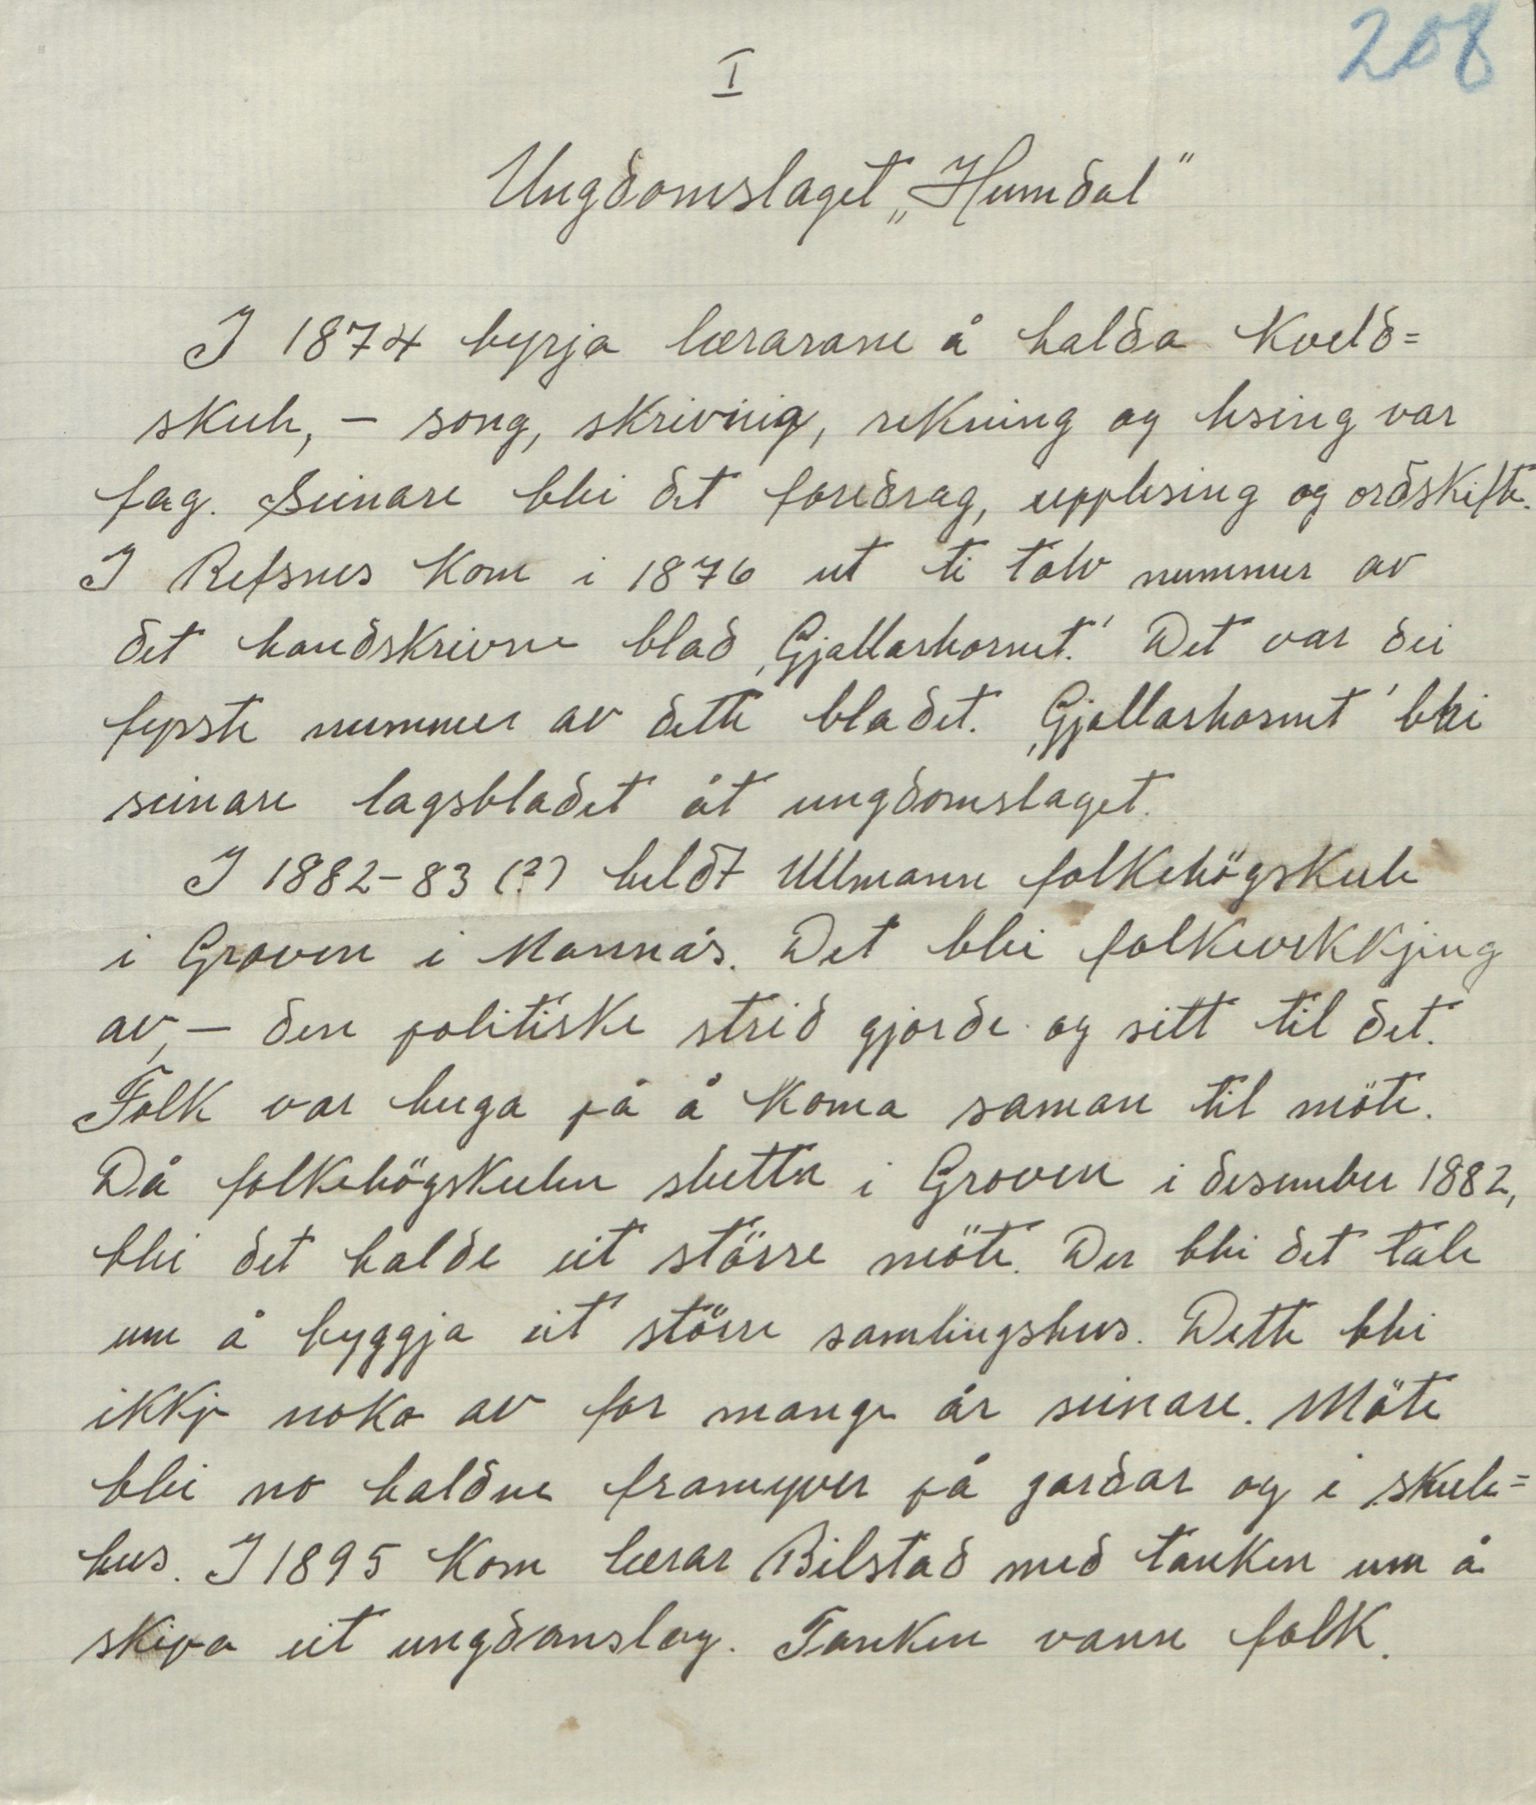 208
I
Ungdomslaget „Humdal"
I 1874 byrja lærarane å halda kveld=
skule, – song, skriving, rekning og lesing var
fag. Seinare blei det foredrag, upplesing og ordskifte.
I Refsnes kom i 1876 ut ti tolv nummer av
det handskrivne blad ‚Gjallarhornet.' Det var dei
fyrste nummer av dette bladet. ‚Gjallarhornet' blei
seinare lagsbladet åt ungdomslaget.
I 1882–83 (?) heldt Ullmann folkehögskule
i Groven i Mannås. Det blei folkevekkjing
av, – den politiske strid gjorde og sitt til det.
Folk var huga på å koma saman til möte.
Då folkehögskulen slutta i Groven i desember 1882,
blei det halde eit större möte. Der blei det tale
um å byggja eit större samlingshus. Dette blei
ikkje noko av for mange år seinare. Möte
blei no haldne framyver på gardar og i skule=
hus. I 1895 kom lærar Bilstad med tanken um å
skipa eit ungdomslag. Tanken vann folk.